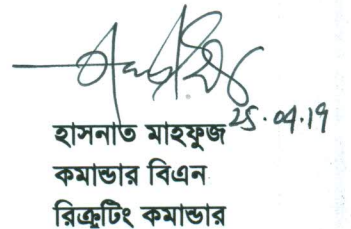 ২৫.০৭.১৭
হাসনাত মাহফুজ
কমান্ডার বিএন
রিক্রুটিং কমান্ডার